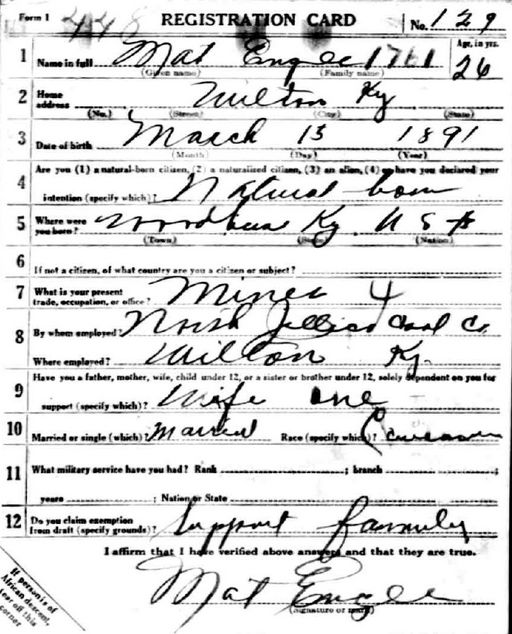 Form 1 448 REGISTRATION CARD No. 129
1 Name in full Mat Engle 1761 Age, in yrs. 26
(Given name) (Family name)
2 Home address Wilton Ky
(No.) (Street) (City) (State)
3 Date of birth March 13 1891
(Month) (Day) (Year)
4 Are you (1) a natural-born citizen, (2) a naturalized citizen, (3) an alien, (4) or have you declared your
intention (specify which)? Natural born
5 Where were you born? Woodbine Ky. U S A
(Town) (State) (Nation)
6 If not a citizen, of what country are you a citizen or subject?
7 What is your present trade, occupation, or office? Miner 4
8 By whom employed? North Jellico Coal Co.
Where employed? Wilton Ky.
9 Have you a father, mother, wife, child under 12, or a sister or brother under 12, solely dependent on you for
support (specify which)? Wife one
10 Married or single (which)? Married Race (specify which)? Caucasian
11 What military service have you had? Rank ; branch
years ; Nation or State
12 Do you claim exemption from draft (specify grounds)? Support family
I affirm that I have verified above answers and that they are true.
Mat Engle
(Signature or mark)
If person is of
African descent,
tear off this
corner